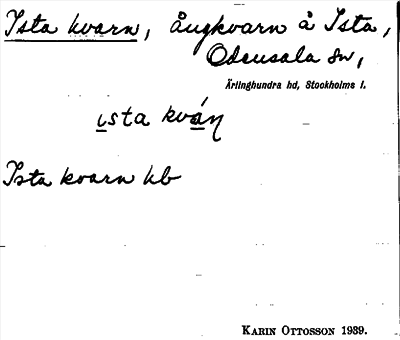 Ista kvarn, ångkvarn å Ista,
Odensala sn,
Ärlinghundra hd, Stockholms l.
ısta kváɳ
Ista kvarn hb
KARIN OTTOSSON 1939.